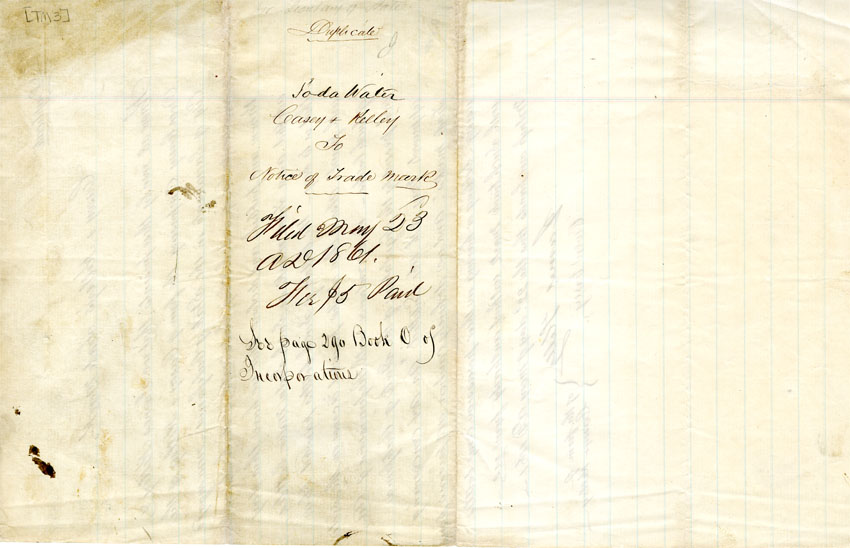 [TM3]
Duplicate
Soda Water
Casey & Kelley
To
Notice of Trade Mark
Filed May 23
AD 1861.
Fee $5 Paid
See page 290 Book O of
Incorporations